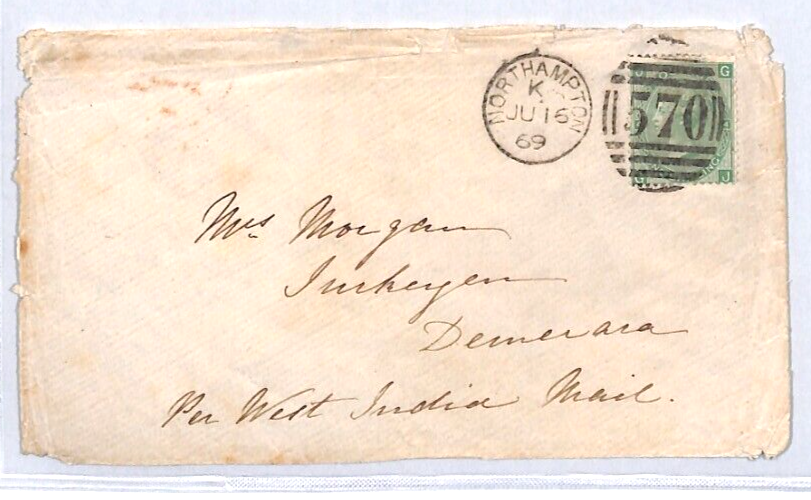 NORTHAMPTON
K
JU 16
69
570
G
G J
Mrs Morgan
Turkeyen
Demerara
Per West India Mail.